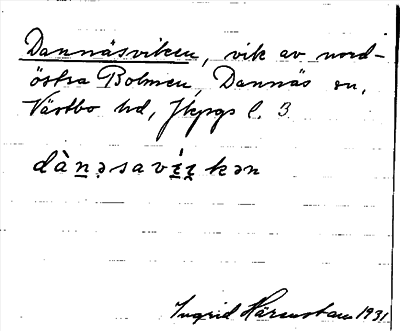 Dannäsviken, vik av nord-
östra Bolmen, Dannäs sn,
Västbo hd, Jkpgs l. 3
dànəsavíkən
Ingrid 1931